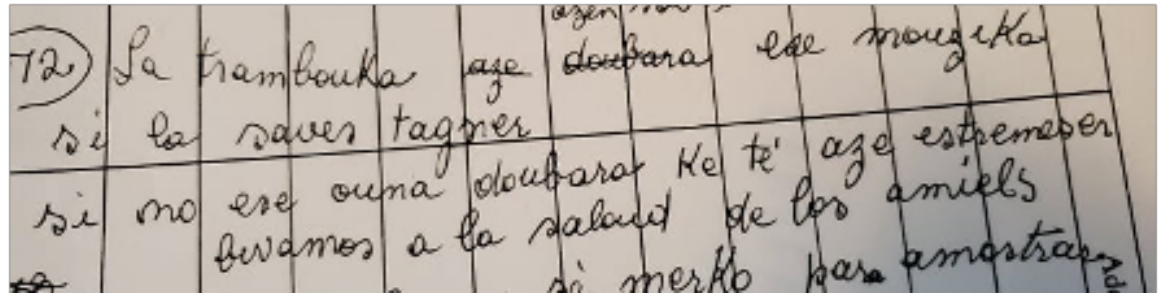 72) La trambouka aze doubara ese mouzika
si la saves tagner
si no ese ouna doubara Ke té aze estremeser
bivamos a la saloud de los amiels
si merko para amostrar